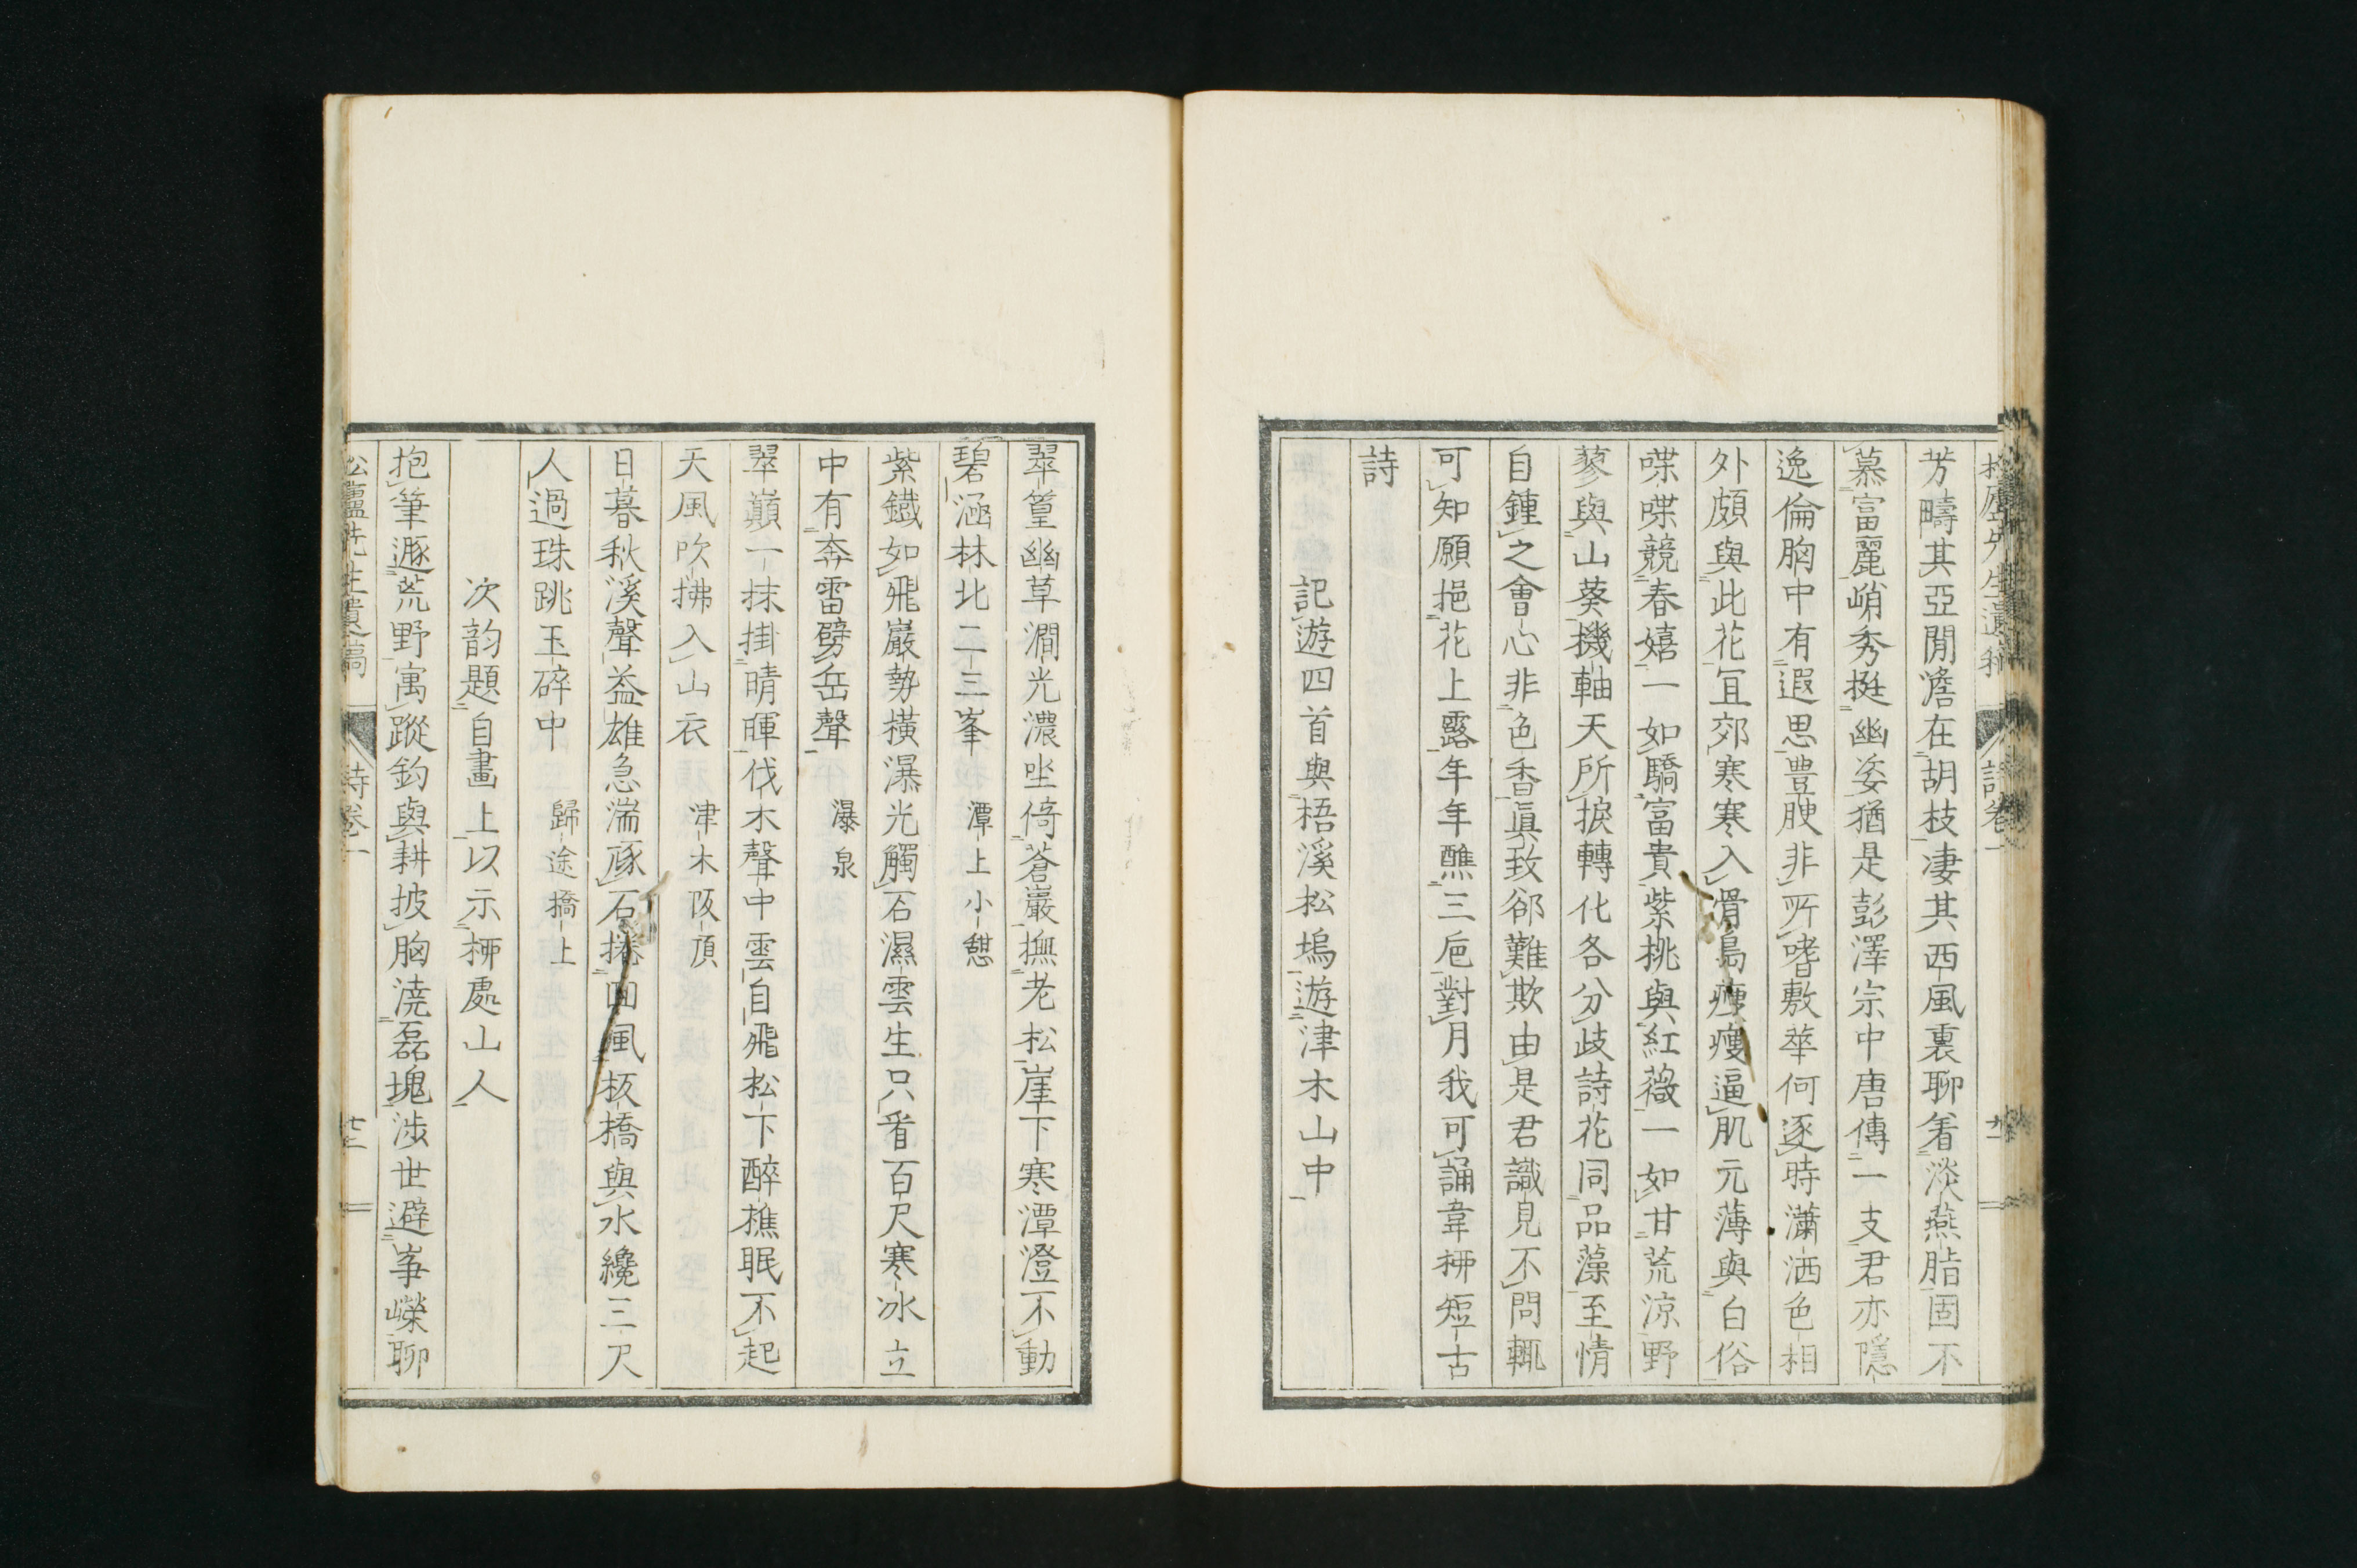 芳疇其亞閒澹在胡枝凄其西風裏聊着淡燕脂固不
慕富麗峭秀挺幽姿猶是彭澤宗中唐傳一支君亦隱
逸倫胸中有遐思豊腴非所嗜敷華何逐時瀟洒色相
外頗與此花宜郊寒寒入滑島瘦瘦逼肌元薄與白俗
喋喋競春嬉一如驕富貴紫桃與紅薇一如甘荒涼野
蓼與山葵機軸天所捩轉化各分歧詩花同品藻至情
自鍾之會心非色香眞致郤難欺由是君識見不問輒
可知願挹花上露年年醮三巵對月我可誦韋栁短古
詩
記遊四首與梧溪松塢遊津木山中
翠篁幽草澗光濃坐倚蒼巖撫老松崖下寒潭澄不動
碧涵林北二三峯 潭上小憩
紫鐵如飛巖勢橫瀑光觸石濕雲生只看百尺寒冰立
中有奔雷劈岳聲 瀑泉
翠巔一抹掛晴暉伐木聲中雲自飛松下醉樵眠不起
天風吹拂入山衣 津木阪頂
日暮秋溪聲益雄急湍豗石捲回風板橋與水纔三尺
人過珠跳玉碎中 歸途橋上
次韵題自畫上以示栁處山人
抱筆遯荒野寓蹤釣與耕披胸澆磊塊涉世避崢嶸聊
松廬先生遺稿 詩卷一